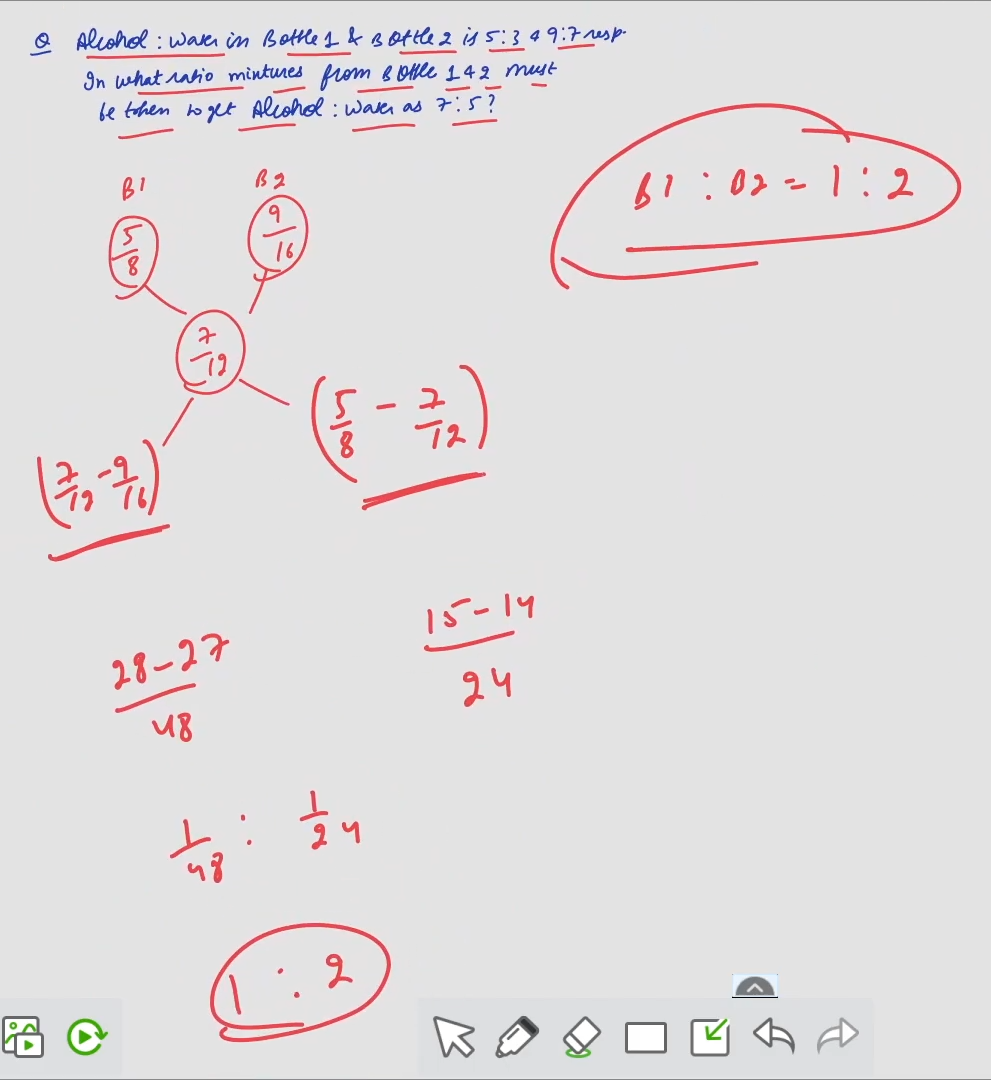 Q Alcohol : Water in Bottle 1 & Bottle 2 is 5:3 & 9:7 resp.
In what ratio mixtures from Bottle 1 & 2 must
be taken to get Alcohol : Water as 7:5?
B1 : B2 = 1 : 2
B1 B2
5/8 9/16
7/12
(7/12 - 9/16) (5/8 - 7/12)
28-27/48 15-14/24
1/48 : 1/24
1 : 2